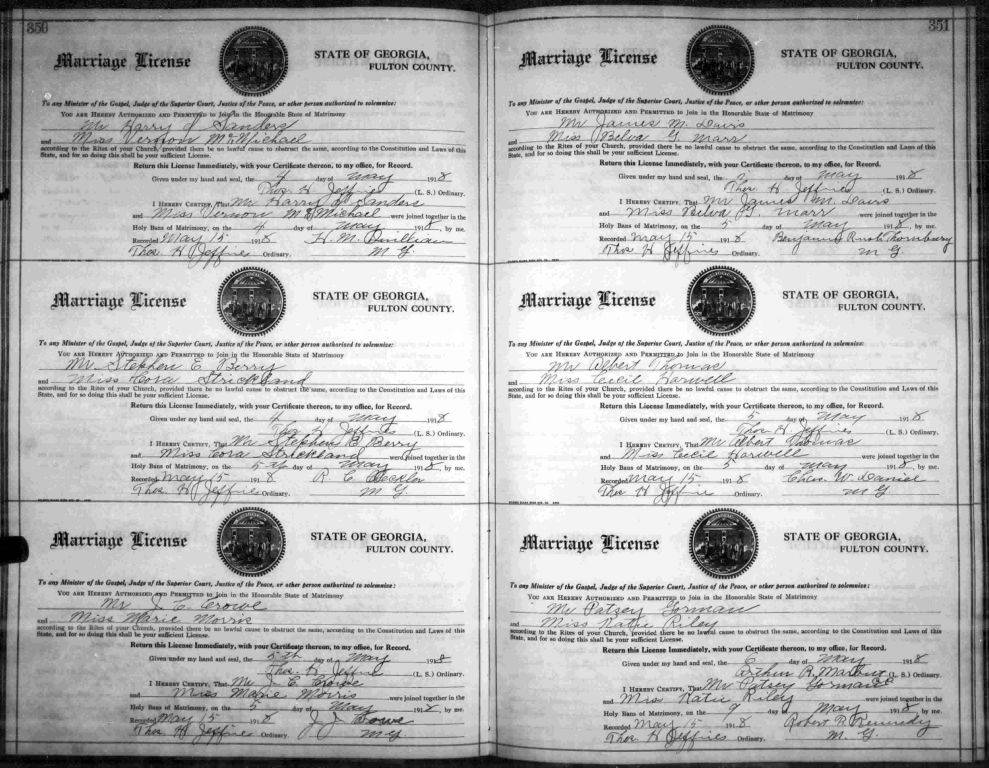 356
Marriage License
STATE OF GEORGIA,
FULTON COUNTY.
To any Minister of the Gospel, Judge of the Superior Court, Justice of the Peace, or other person authorized to solemnize:
YOU ARE HEREBY AUTHORIZED AND PERMITTED to Join in the Honorable State of Matrimony
Mr Harry J Sanders
and Miss Vernon McMichael
according to the Rites of your Church, provided there be no lawful cause to obstruct the same, according to the Constitution and Laws of this
State, and for so doing this shall be your sufficient License.
Return this License Immediately, with your Certificate thereon, to my office, for Record.
Given under my hand and seal, the 4 day of May 1918
Thos. H Jeffries (L. S.) Ordinary.
I HEREBY CERTIFY, That Mr Harry Sanders
and Miss Vernon McMichael were joined together in the
Holy Bans of Matrimony, on the 4 day of May 1918, by me.
Recorded May 15 1918 H. M. Quillian
Thos H Jeffries Ordinary. M. G.
Marriage License
STATE OF GEORGIA,
FULTON COUNTY.
To any Minister of the Gospel, Judge of the Superior Court, Justice of the Peace, or other person authorized to solemnize:
YOU ARE HEREBY AUTHORIZED AND PERMITTED to Join in the Honorable State of Matrimony
Mr. Stephen E. Berry
and Miss Cora Strickland
according to the Rites of your Church, provided there be no lawful cause to obstruct the same, according to the Constitution and Laws of this
State, and for so doing this shall be your sufficient License.
Return this License Immediately, with your Certificate thereon, to my office, for Record.
Given under my hand and seal, the 4 day of May 1918
Thos H Jeffries (L. S.) Ordinary.
I HEREBY CERTIFY, That Mr Stephen E Berry
and Miss Cora Strickland were joined together in the
Holy Bans of Matrimony, on the 5th day of May 1918, by me.
Recorded May 15 1918 R. C.
Thos H Jeffries Ordinary. M G
Marriage License
STATE OF GEORGIA,
FULTON COUNTY.
To any Minister of the Gospel, Judge of the Superior Court, Justice of the Peace, or other person authorized to solemnize:
YOU ARE HEREBY AUTHORIZED AND PERMITTED to Join in the Honorable State of Matrimony
Mr J. E. Crowe
and Miss Marie Morros
according to the Rites of your Church, provided there be no lawful cause to obstruct the same, according to the Constitution and Laws of this
State, and for so doing this shall be your sufficient License.
Return this License Immediately, with your Certificate thereon, to my office, for Record.
Given under my hand and seal, the 5th day of May 1918
Thos H Jeffries (L. S.) Ordinary.
I HEREBY CERTIFY, That Mr J E Crowe
and Miss Marie Morris were joined together in the
Holy Bans of Matrimony, on the 5 day of May 1918, by me.
Recorded May 15 1918 J. J.
Thos H Jeffries Ordinary. M G
351
Marriage License
STATE OF GEORGIA,
FULTON COUNTY.
To any Minister of the Gospel, Judge of the Superior Court, Justice of the Peace, or other person authorized to solemnize:
YOU ARE HEREBY AUTHORIZED AND PERMITTED to Join in the Honorable State of Matrimony
Mr James M. Davis
and Miss Belva G Marr
according to the Rites of your Church, provided there be no lawful cause to obstruct the same, according to the Constitution and Laws of this
State, and for so doing this shall be your sufficient License.
Return this License Immediately, with your Certificate thereon, to my office, for Record.
Given under my hand and seal, the day of May 1918
Thos H Jeffries (L. S.) Ordinary.
I HEREBY CERTIFY, That Mr James M. Davis
and Miss Belva G. Marr were joined together in the
Holy Bans of Matrimony, on the 5 day of May 1918, by me.
Recorded May 15 1918 Benjamin Thornbury
Thos H Jeffries Ordinary. M G.
Marriage License
STATE OF GEORGIA,
FULTON COUNTY.
To any Minister of the Gospel, Judge of the Superior Court, Justice of the Peace, or other person authorized to solemnize:
YOU ARE HEREBY AUTHORIZED AND PERMITTED to Join in the Honorable State of Matrimony
Mr Albert Thomas
and Miss Cecil Harwell
according to the Rites of your Church, provided there be no lawful cause to obstruct the same, according to the Constitution and Laws of this
State, and for so doing this shall be your sufficient License.
Return this License Immediately, with your Certificate thereon, to my office, for Record.
Given under my hand and seal, the 5 day of May 1918
Thos H Jeffries (L. S.) Ordinary.
I HEREBY CERTIFY, That Mr Albert Thomas
and Miss Cecil Harwell were joined together in the
Holy Bans of Matrimony, on the 5 day of May 1918, by me.
Recorded May 15 1918 Chas. W. Daniel
Thos H Jeffries Ordinary. M G
Marriage License
STATE OF GEORGIA,
FULTON COUNTY.
To any Minister of the Gospel, Judge of the Superior Court, Justice of the Peace, or other person authorized to solemnize:
YOU ARE HEREBY AUTHORIZED AND PERMITTED to Join in the Honorable State of Matrimony
Mr Patsey Gorman
and Miss Katie Riley
according to the Rites of your Church, provided there be no lawful cause to obstruct the same, according to the Constitution and Laws of this
State, and for so doing this shall be your sufficient License.
Return this License Immediately, with your Certificate thereon, to my office, for Record.
Given under my hand and seal, the 6 day of May 1918
Arthur R. Marbut (L. S.) Ordinary.
I HEREBY CERTIFY, That Mr Patsey Gorman
and Miss Katie Riley were joined together in the
Holy Bans of Matrimony, on the 9 day of May 1918, by me.
Recorded May 15 1918 Robert R. Kennedy
Thos. H Jeffries Ordinary. M. G.